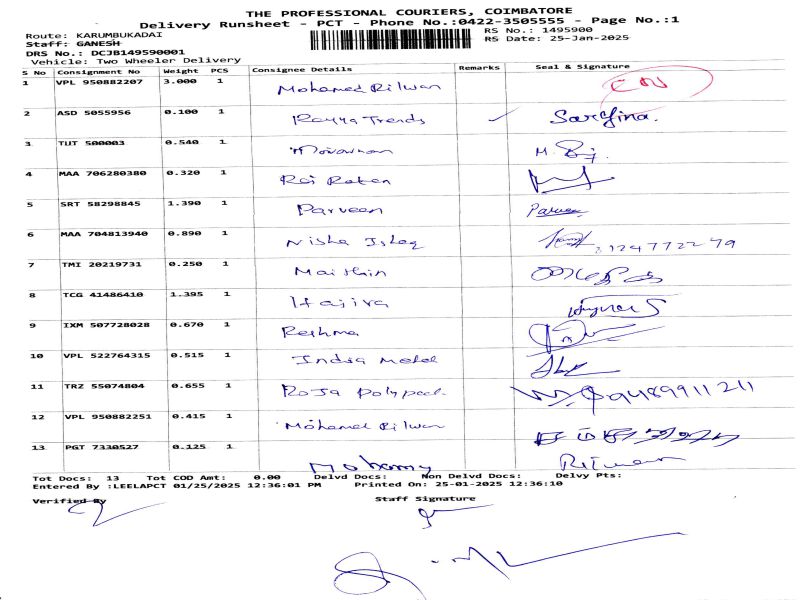 THE PROFESSIONAL COURIERS, COIMBATORE
Delivery Runsheet - PCT - Phone No.:0422-3505555 - Page No.:1
Route: KARUMBUKADAI RS No.: 1495900
Staff: GANESH RS Date: 25-Jan-2025
DRS No.: DCJB149590001
Vehicle: Two Wheeler Delivery
S No Consignment No Weight PCS Consignee Details Remarks Seal & Signature
1 VPL 950882207 3.000 1 Mohamed Rilwan
2 ASD 5055956 0.100 1 Rayya Trends ✓ Sargina.
3 TUT 500003 0.540 1
4 MAA 706280380 0.320 1
5 SRT 58298845 1.390 1 Parveen Parveen
6 MAA 704813940 0.890 1 Nisha Ishaq
7 TMI 20219731 0.250 1
8 TCG 41486410 1.395 1 Hajira
9 IXM 507728028 0.670 1 Reshma
10 VPL 522764315 0.515 1 India
11 TRZ 55074804 0.655 1 Roja 9489911211
12 VPL 950882251 0.415 1 Mohamed Rilwan
13 PGT 7330527 0.125 1
Tot Docs: 13 Tot COD Amt: 0.00 Delvd Docs: Non Delvd Docs: Delvy Pts:
Entered By :LEELAPCT 01/25/2025 12:36:01 PM Printed On: 25-01-2025 12:36:10
Verified By Staff Signature